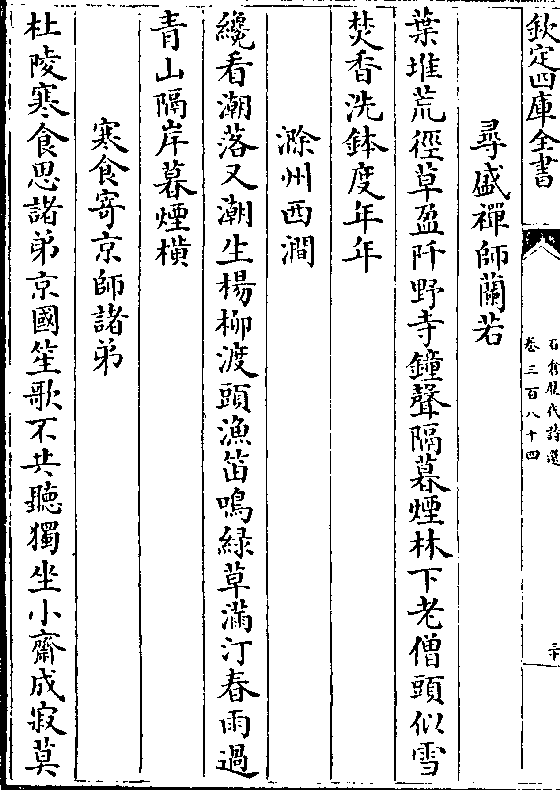 欽定四庫全書
石倉歷代詩選
卷三百八十四
二十
尋盛禪師蘭若
葉堆荒徑草盈阡野寺鐘聲隔暮煙林下老僧頭似雪
焚香洗鉢度年年
滁州西澗
纔看潮落又潮生楊柳渡頭漁笛鳴綠草滿汀春雨過
青山隔岸暮煙橫
寒食寄京師諸弟
杜陵寒食思諸弟京國笙歌不共聽獨坐小齋成寂莫